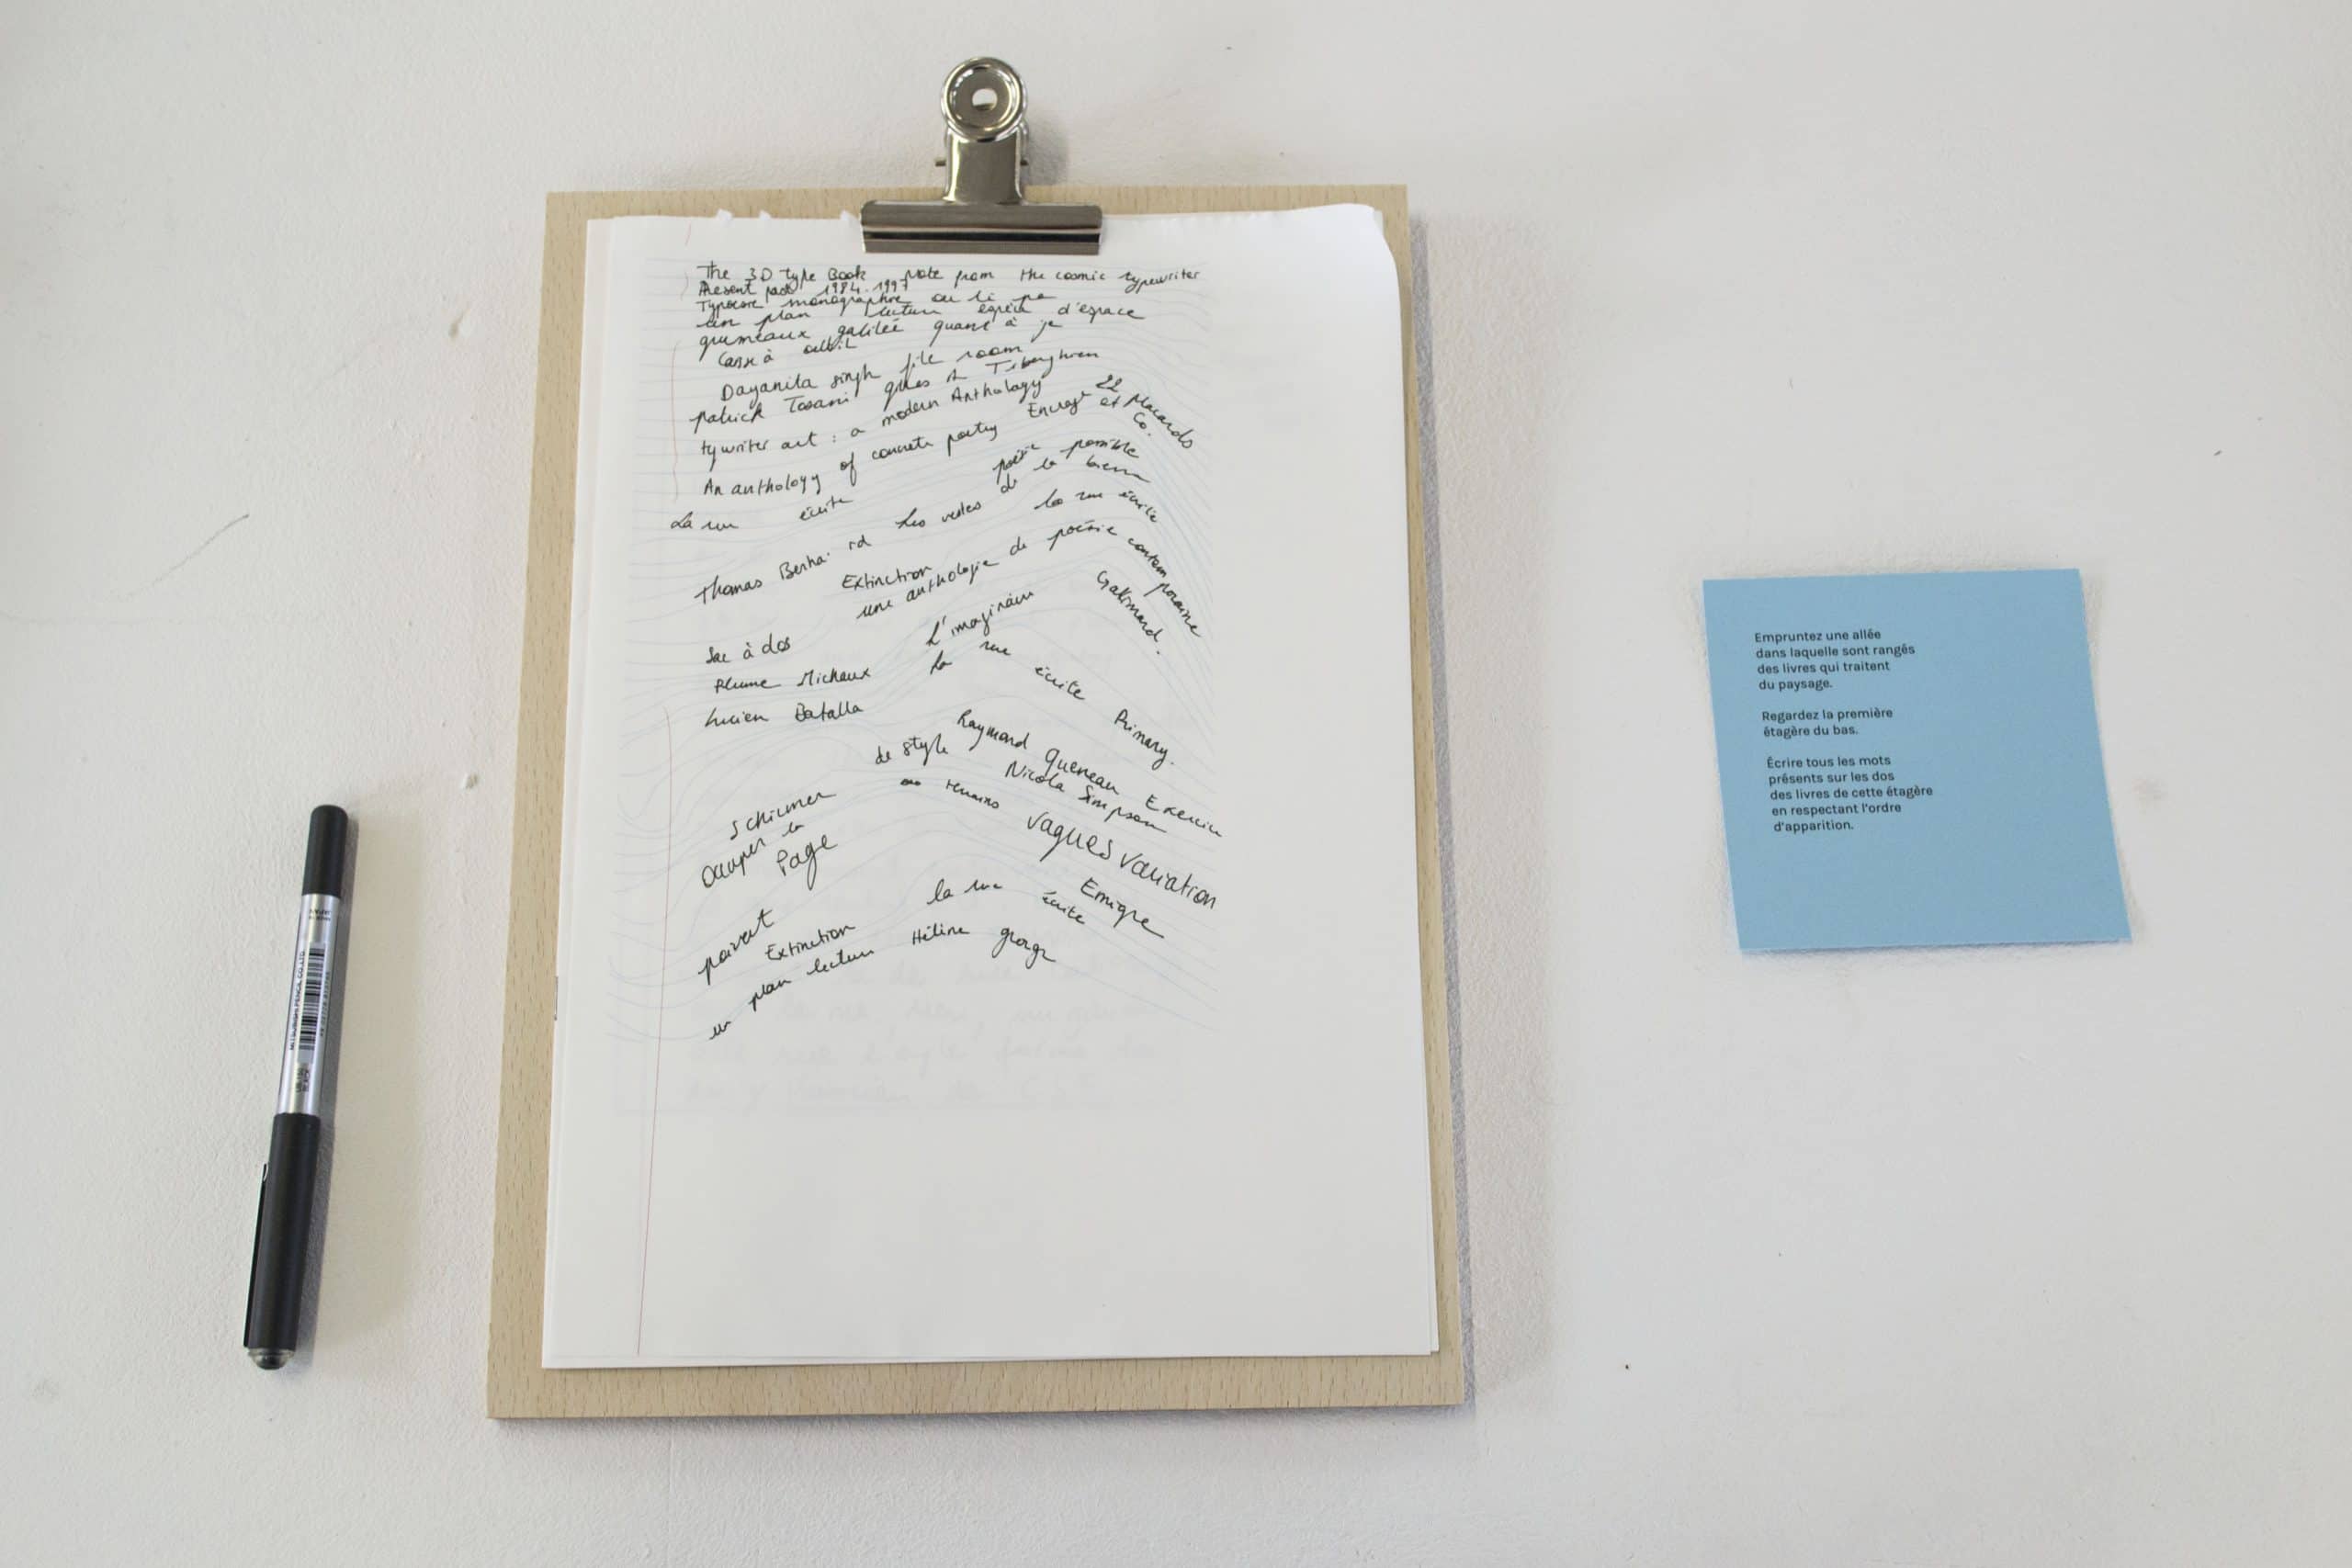 The 3D type Book Note from the cosmic typewriter
Present past 1984.1997
Typoésie monographie ou li pa
un plan lecture espèce d'espace
grumeaux galilée quant à je
Casse à
Dayanita singh file room
patrick Tosani gilles A Tiberghien
tywriter art : a modern Anthology
22 placards et Co.
An anthology of concrete poetry Encrage
La rue écrite
poésie possible
Thomas Bernha rd Les restes de la
la rue écrite
Extinction
une anthologie de poésie contemporaine
Sac à dos
L'imaginaire Gallimard.
Plume Michaux la rue écrite Primary.
Lucien Batalla
Raymond Queneau Exercice
de style Nicola Simpson
Schirmer
remains vagues variation
Occuper la Page
la rue écrite Emigre
poivert
Extinction
un plan lecture Hélène george
Empruntez une allée
dans laquelle sont rangés
des livres qui traitent
du paysage.
Regardez la première
étagère du bas.
Écrire tous les mots
présents sur les dos
des livres de cette étagère
en respectant l'ordre
d'apparition.
MITSUBISHI PENCIL CO.,LTD.